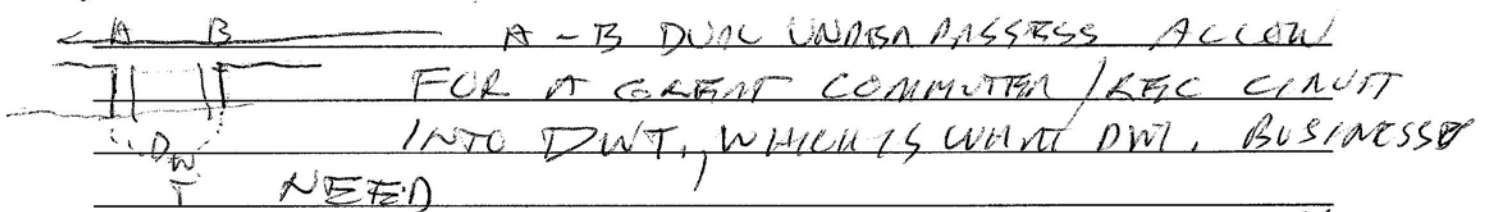 A B A - B DUAL UNDERPASSESS ALLOW
FOR A GREAT COMMUTER / REC CIRCUIT
INTO DWT., WHICH IS WHAT DWT. BUSINESSES
DWT NEED